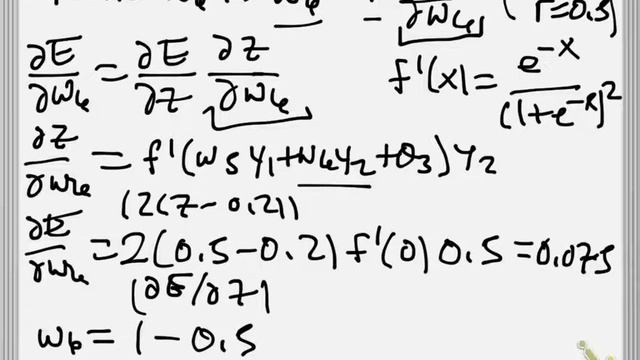 ∂E/∂w₆ = ∂E/∂z ∂z/∂w₆
f'(x) = e^{-x}/(1+e^{-x})²
∂z/∂w₆ = f'(w5y₁+w6y₂+θ₃)y₂
(2(z-0.2))
∂E/∂w₆ = 2(0.5-0.2)f'(0)0.5=0.075
(∂E/∂z)
w₆ = 1-0.5